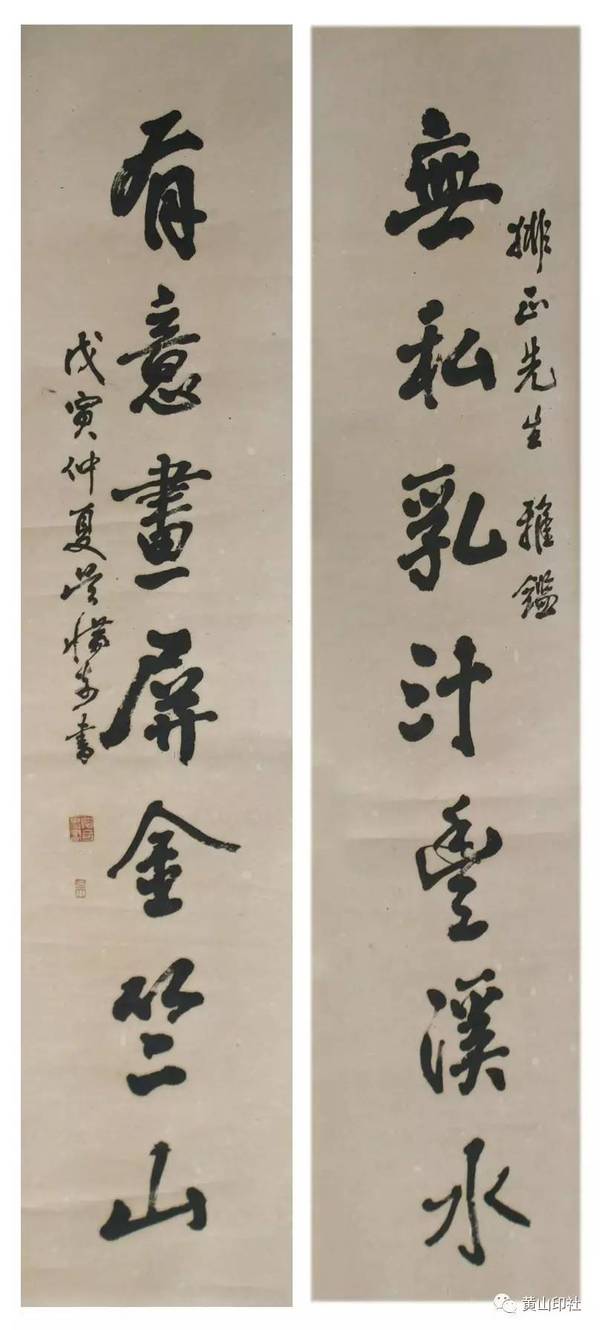 正先生 雅鑑
無私乳汁豐溪水
有意畫屏金竺山
戊寅仲夏 書
黄山印社